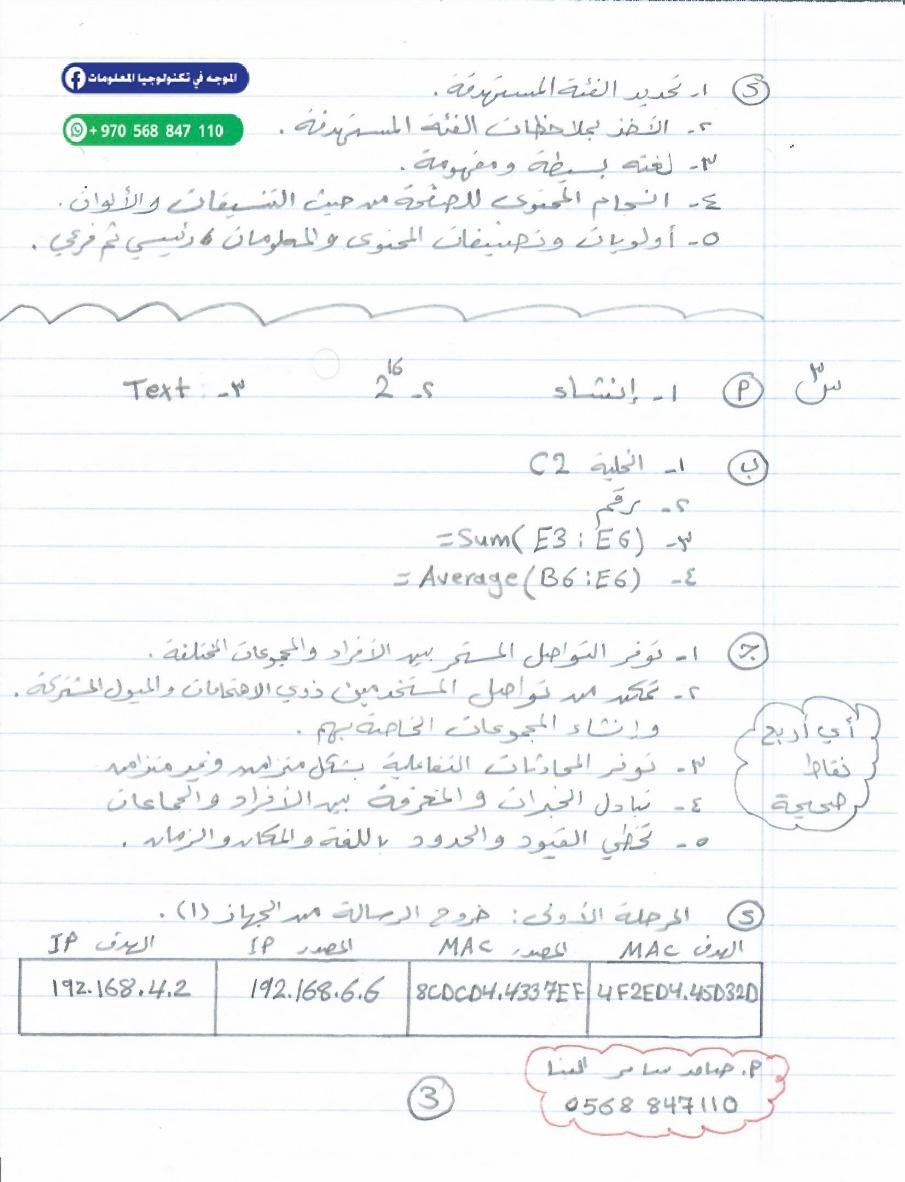 الموجه في تكنولوجيا المعلومات
+ 970 568 847 110
د ١- تحديد الفئة المستهدفة.
٢- الأخذ بملاحظات الفئة المستهدفة.
٣- لغته بسيطة ومفهومة.
٤- انسجام المحتوى للصفحة من حيث التنسيقات والألوان.
٥- أولويات وتصنيفات المحتوى والمعلومات، رئيسي ثم فرعي.
س٣ أ ١- إنشاء ٢- 2^16 ٣- Text
ب ١- الخلية C2
٢- رقم
٣- =Sum( E3 : E6)
٤- =Average(B6:E6)
ج ١- توفر التواصل المستمر بين الأفراد والمجموعات المختلفة.
٢- تمكن من تواصل المستخدمين ذوي الاهتمامات والميول المشتركة.
وإنشاء المجموعات الخاصة بهم.
٣- توفر المحادثات التفاعلية بشكل متزامن وغير متزامن
٤- تبادل الخبرات والمعرفة بين الأفراد والجماعات
٥- تخطي القيود والحدود باللغة والمكان والزمان.
أي أربع
نقاط
صحيحة
د المرحلة الأولى: خروج الرسالة من الجهاز (١).
الهدف MAC المصدر MAC المصدر IP الهدف IP
4F2ED4.45D32D 8CDCD4.4337EF 192.168.6.6 192.168.4.2
أ. سامر البنا
0568 847110
3